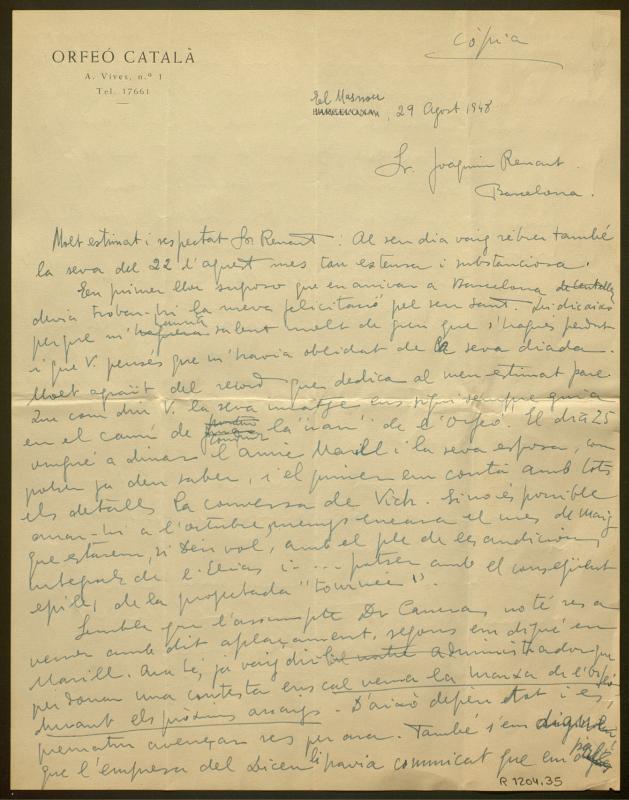 ORFEÓ CATALÀ
A. Vives, n.º 1
Tel. 17661
Còpia
El Masnou
BARCELONA, 29 Agost 1948
Sr. Joaquim Renart.
Barcelona.
Molt estimat i respectat Sr Renart: Al seu dia vaig rebrer també
la seva del 22 d'aquest mes tan extensa i substanciosa.
En primer lloc suposo que en arrivar a Barcelona
devia trobar-hi la meva felicitació pel seu Sant. Li dic això
perque m' sabut molt de greu que s'hagués perdut
i que V. pensés que m'havia oblidat de la seva diada.
Molt agraït del record que dedica al meu estimat pare.
Tan com diu V. la seva imatge ens sigui sempre guia
en el camí de conduir la "nau" de l'Orfeó. El dia 25
vingué a dinar l'amic Marill i la seva esposa, com
potser ja deu saber, i el primer em contà amb tots
els detalls la conversa de Vich. Si no és possible
anar-hi a l'octubre, menys encara el mes de Maig
que estarem, si Déu vol, amb el ple de les audicions
integrals de l'Elias i .... potser amb el consegüent
epíleg de la projectada "tournée".
Sembla que l'assumpte Dr Canera no té res a
veurer amb dit aplaçament, segons em digué en
Marill. Ara bé, ja vaig dir administrador que
per donar una contesta ens cal veure la marxa de l'Orfeó
durant els pròxims assaigs. D'això depèn tot i és
prematur avençar res per ara. També s'em digué
que l'empresa del Liceu li havia comunicat que em
R 1204.35